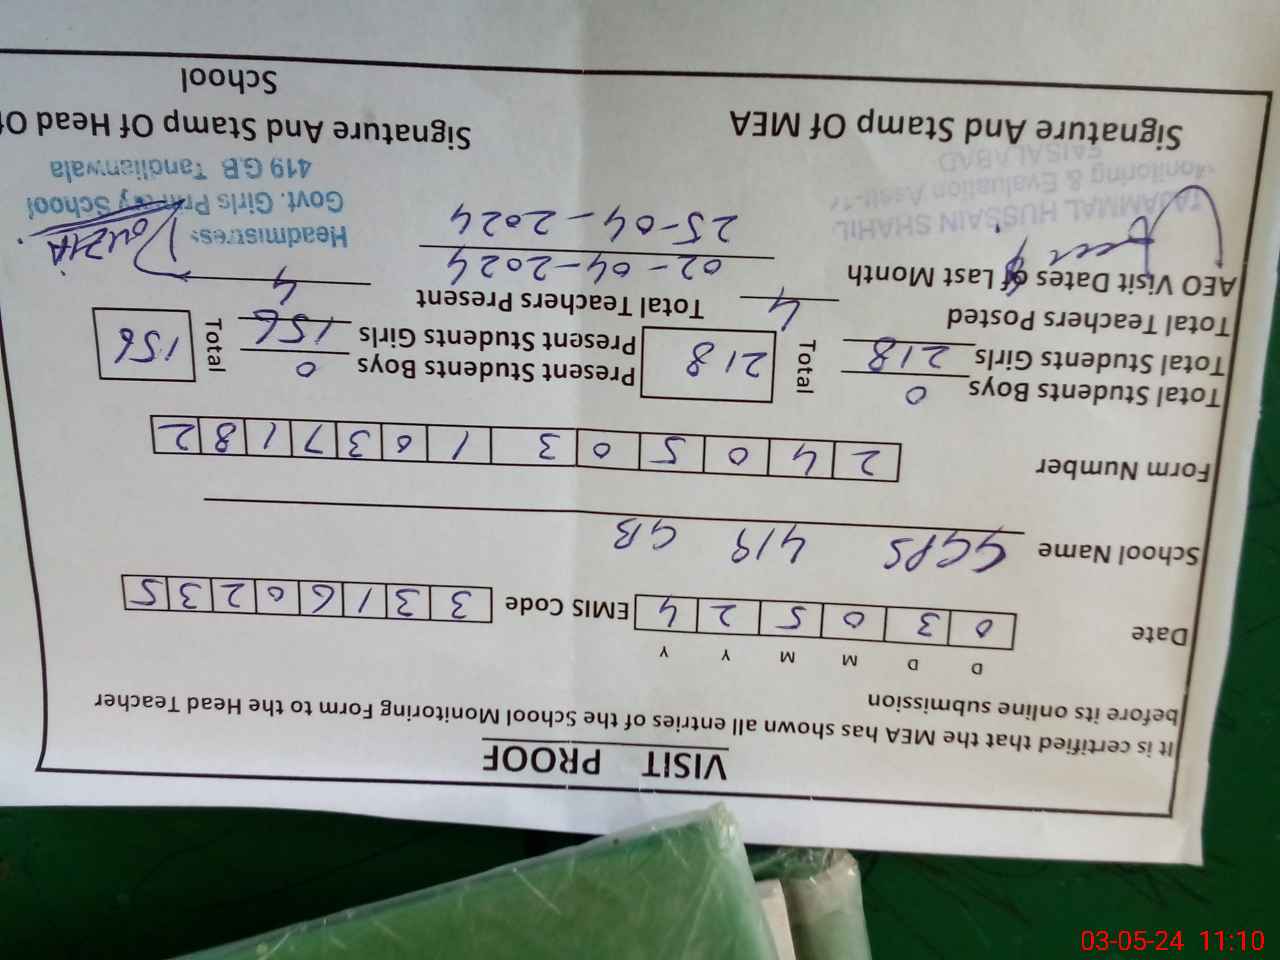 VISIT PROOF
It is certified that the MEA has shown all entries of the School Monitoring Form to the Head Teacher
before its online submission
D D M M Y Y
Date 0 3 0 5 2 4 EMIS Code 3 3 1 6 0 2 3 5
School Name GGPS 419 GB
Form Number 2 4 0 5 0 3 1 0 3 7 1 8 2
Total Students Boys 0 Total 218 Present Students Boys 0 Total 156
Total Students Girls 218 Present Students Girls 156
Total Teachers Posted 4 Total Teachers Present 4
AEO Visit Dates of Last Month 02-04-2024
25-04-2024
TAJAMMAL HUSSAIN SHAHIL
Monitoring & Evaluation Assit
FAISALABAD
Signature And Stamp Of MEA
Fouzia
Headmistress
Govt. Girls Primary School
419 G.B Tandlianwala
Signature And Stamp Of Head Of
School
03-05-24 11:10